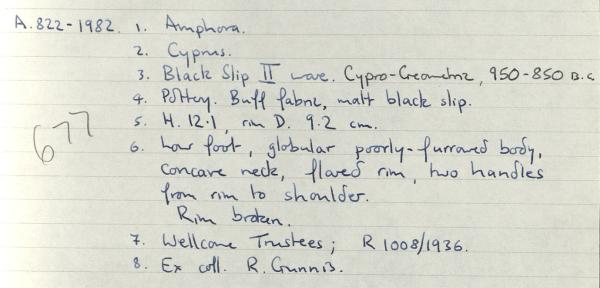 A.822-1982. 1. Amphora.
2. Cyprus.
3. Black Slip II ware. Cypro-Geometric, 950-850 B.C
4. Pottery. Buff fabric, matt black slip.
5. H. 12.1, rim D. 9.2 cm.
677
6. Low foot, globular poorly-furrowed body,
concave neck, flared rim, two handles
from rim to shoulder.
Rim broken.
7. Wellcome Trustees; R 1008/1936.
8. Ex coll. R. Gunnis.